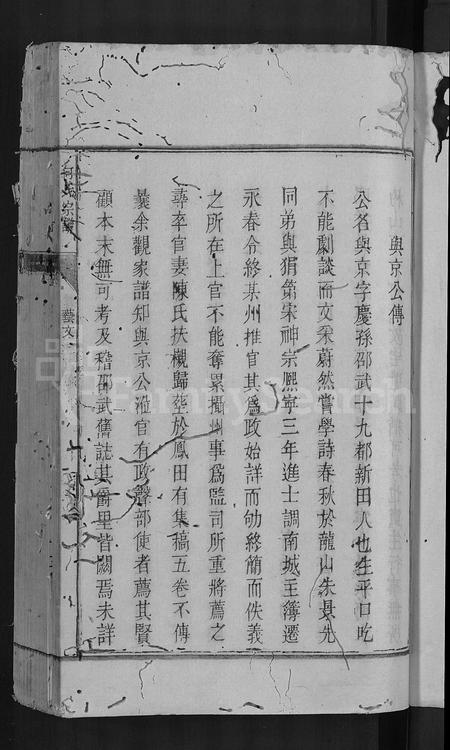 與京公傳
公名與京字慶孫邵武十九都新田人也生平口吃
不能劇談而文采蔚然嘗學詩春秋於龍山朱景先
同弟與狷第宋神宗熙寧三年進士調南城主簿遷
永春令終某州推官其爲政始詳而劬終簡而佚義
之所在上官不能奪累攝州事爲監司所重將薦之
尋卒官妻陳氏扶櫬歸塟於鳳田有集稿五卷不傳
曩余觀家譜知與京公涖官有政聲部使者薦其賢
顧本末無可考及稽邵武舊誌其爵里皆闕焉未詳
宗譜
藝文